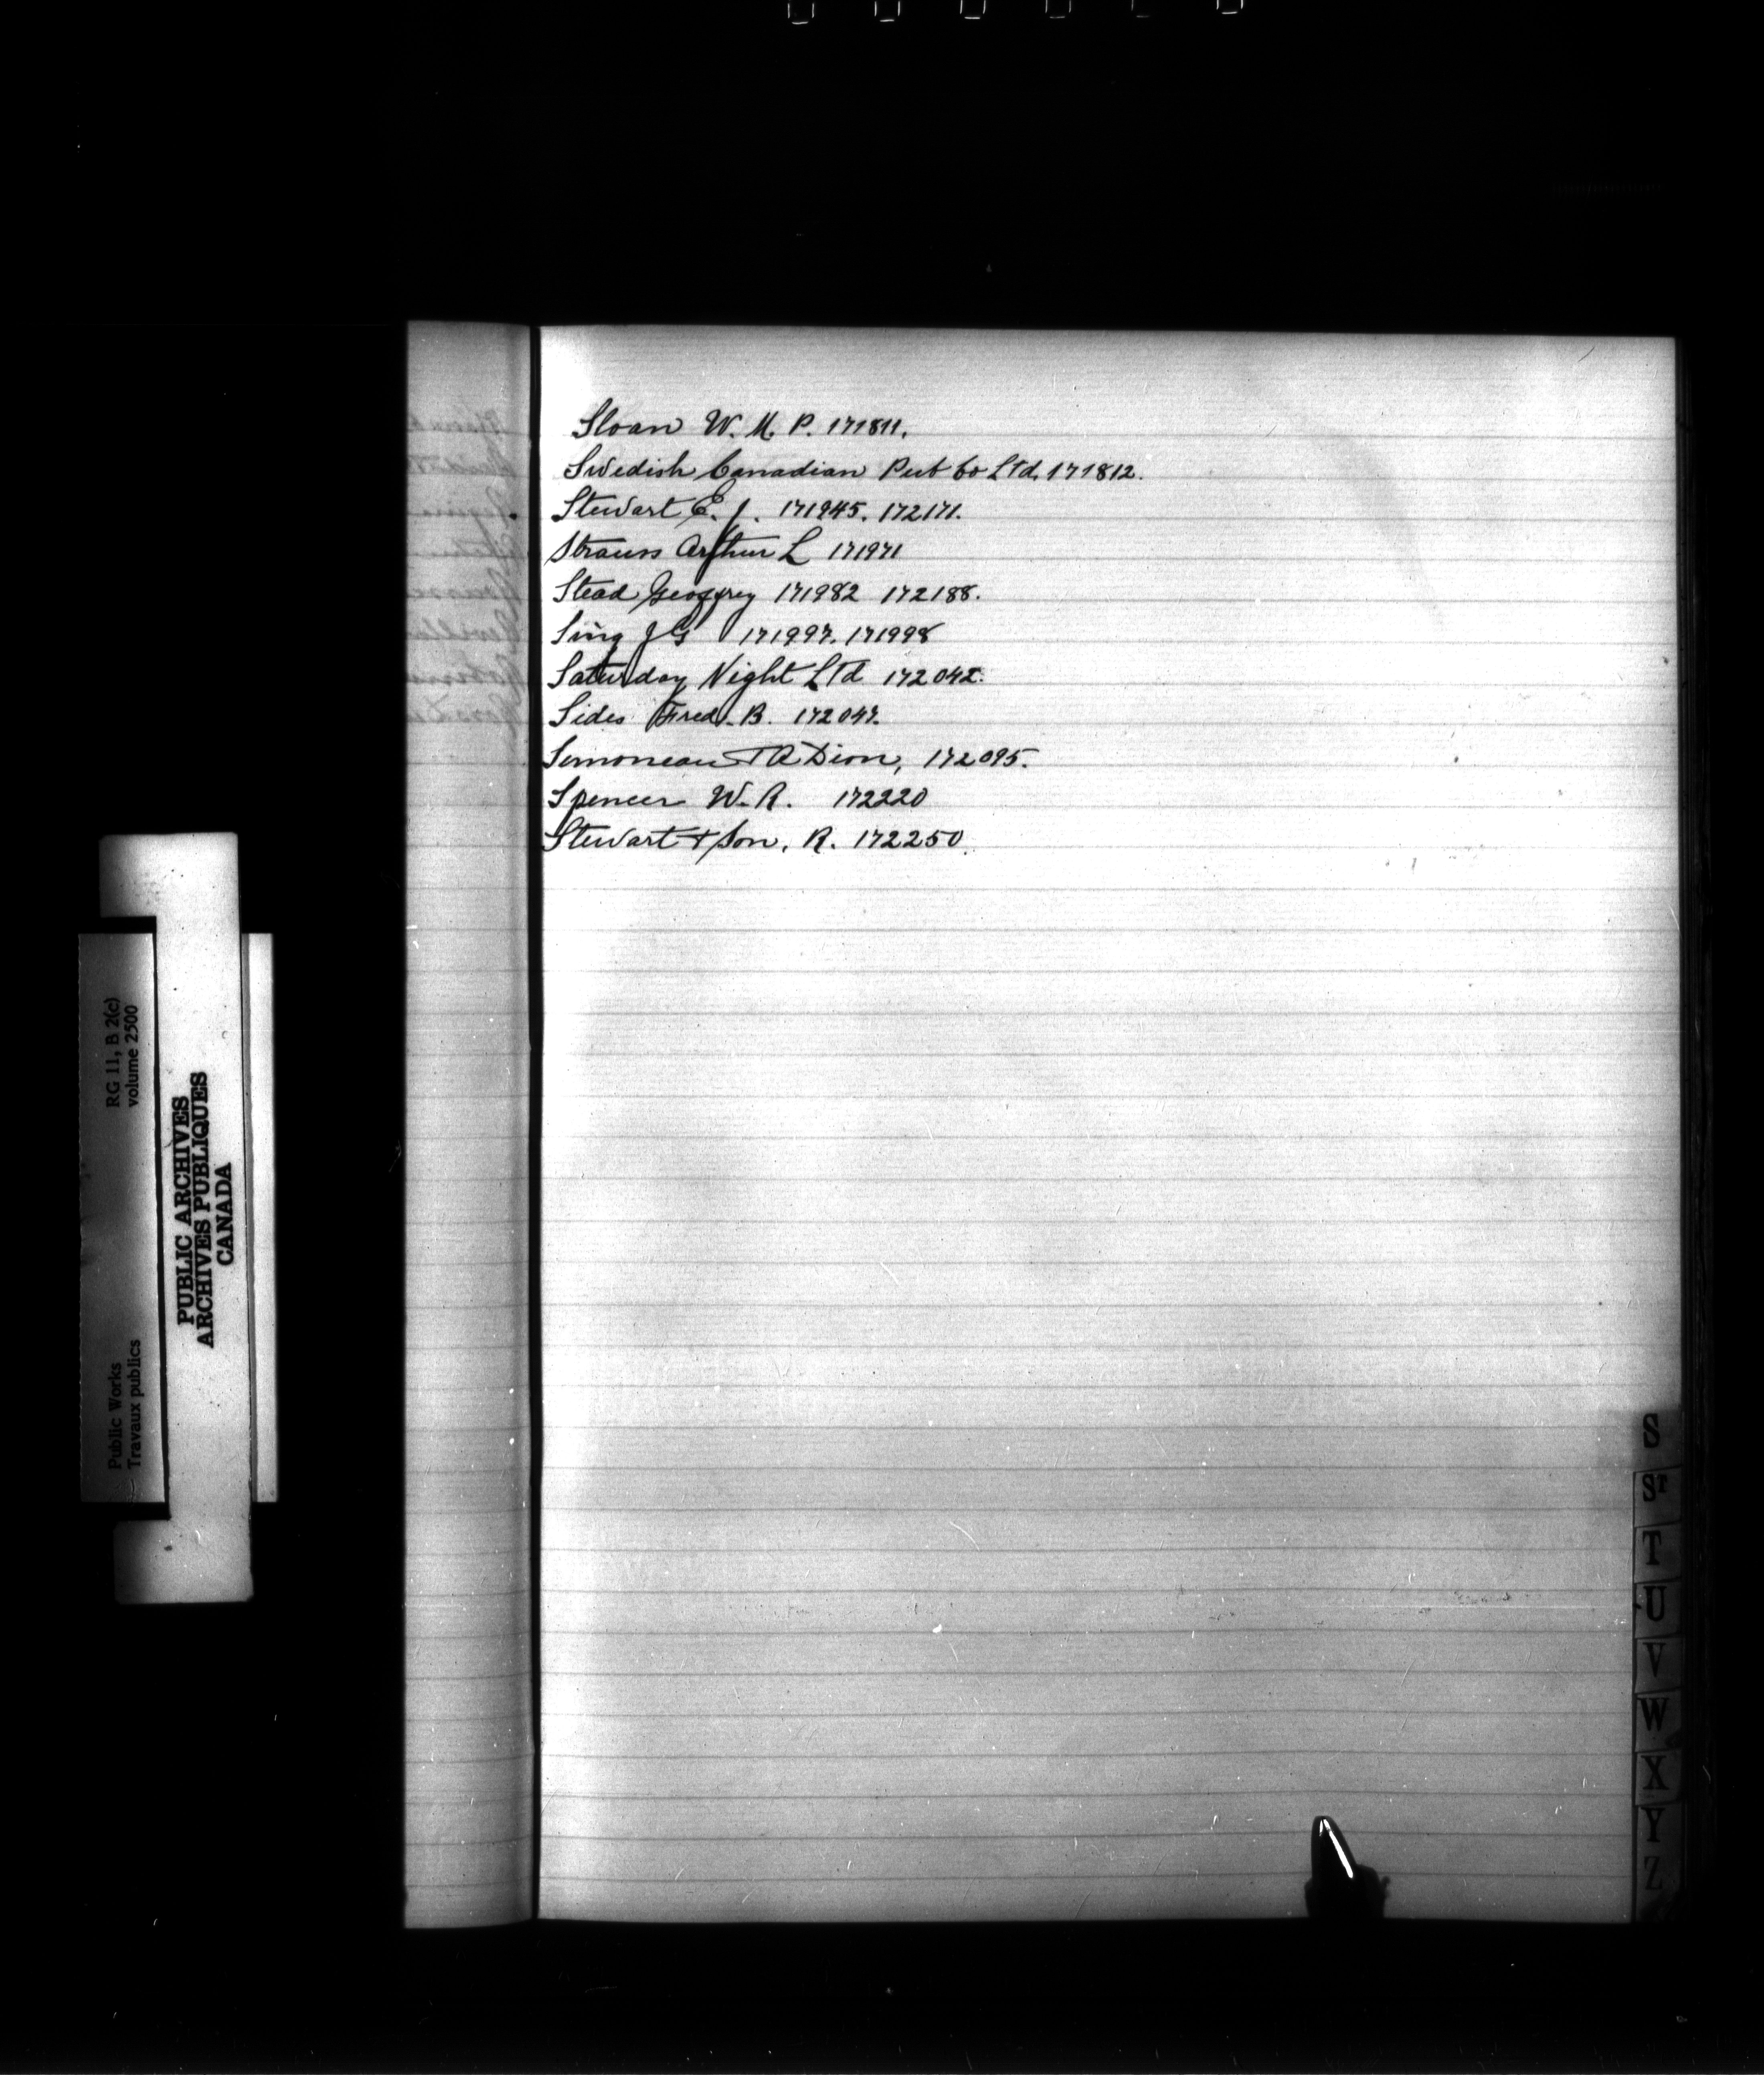 Sloan W. M. P. 171811.
Swedish Canadian Pub Co Ltd. 171812.
Stewart E. J. 171945. 172171.
Strauss Arthur L 171971
Stead Geoffrey 171982 172188.
Sing J G 171997. 171998
Saturday Night Ltd 172042.
Sides Fred. B. 172047.
Simoneau & Dion, 172095.
Spencer W. R. 172220
Stewart & Son, R. 172250.
S
ST
T
U
V
W
X
Y
Z
RG 11, B 2(c)
volume 2500
Public Works
Travaux publics
PUBLIC ARCHIVES
ARCHIVES PUBLIQUES
CANADA